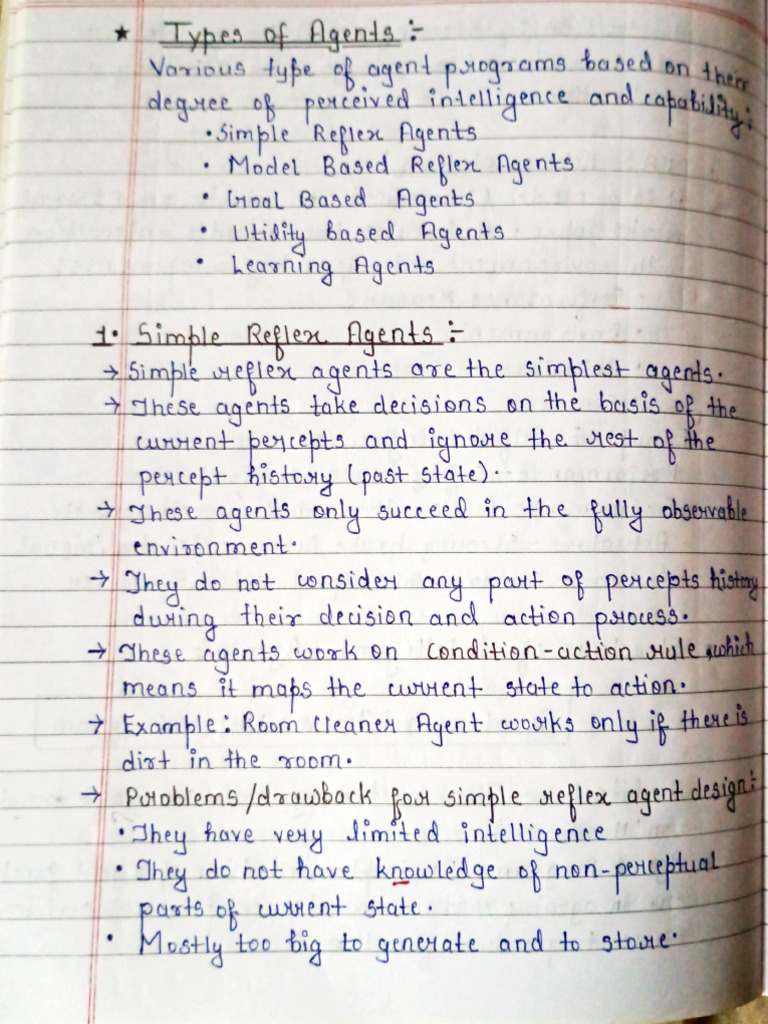 ★ Types of Agents :-
Various type of agent programs based on their
degree of perceived intelligence and capability:
• Simple Reflex Agents
• Model Based Reflex Agents
• Goal Based Agents
• Utility based Agents
• Learning Agents
1. Simple Reflex Agents :-
→ Simple reflex agents are the simplest agents.
→ These agents take decisions on the basis of the
current percepts and ignore the rest of the
percept history (past state).
→ These agents only succeed in the fully observable
environment.
→ They do not consider any part of percepts history
during their decision and action process.
→ These agents work on condition-action rule, which
means it maps the current state to action.
→ Example: Room Cleaner Agent works only if there is
dirt in the room.
→ Problems/drawback for simple reflex agent design:-
• They have very limited intelligence
• They do not have knowledge of non-perceptual
parts of current state.
• Mostly too big to generate and to store.